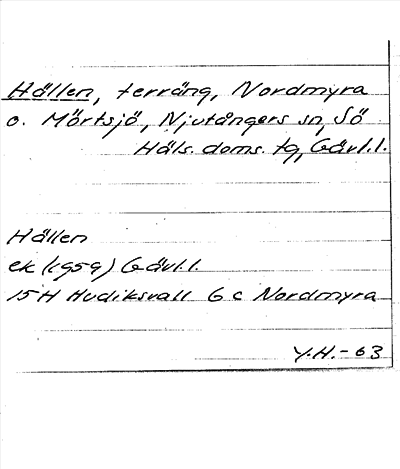 Hällen, terräng, Nordmyra
o. Mörtsjö, Njutångers sn, Sö
Häls. doms. tg, Gävl.l.
Hällen
ek (1959) Gävl.l.
15H Hudiksvall 6 c Nordmyra
Y.H.-63